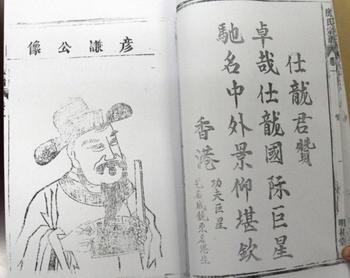 仕龍君贊
卓哉仕龍國際巨星
馳名中外景仰堪欽
香港
功夫巨星
彥謙公像